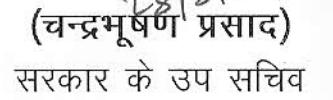 (चन्द्रभूषण प्रसाद)
सरकार के उप सचिव